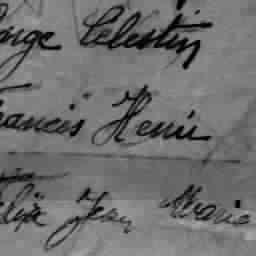 Celestin
Francis Henri
Félix Jean Marie